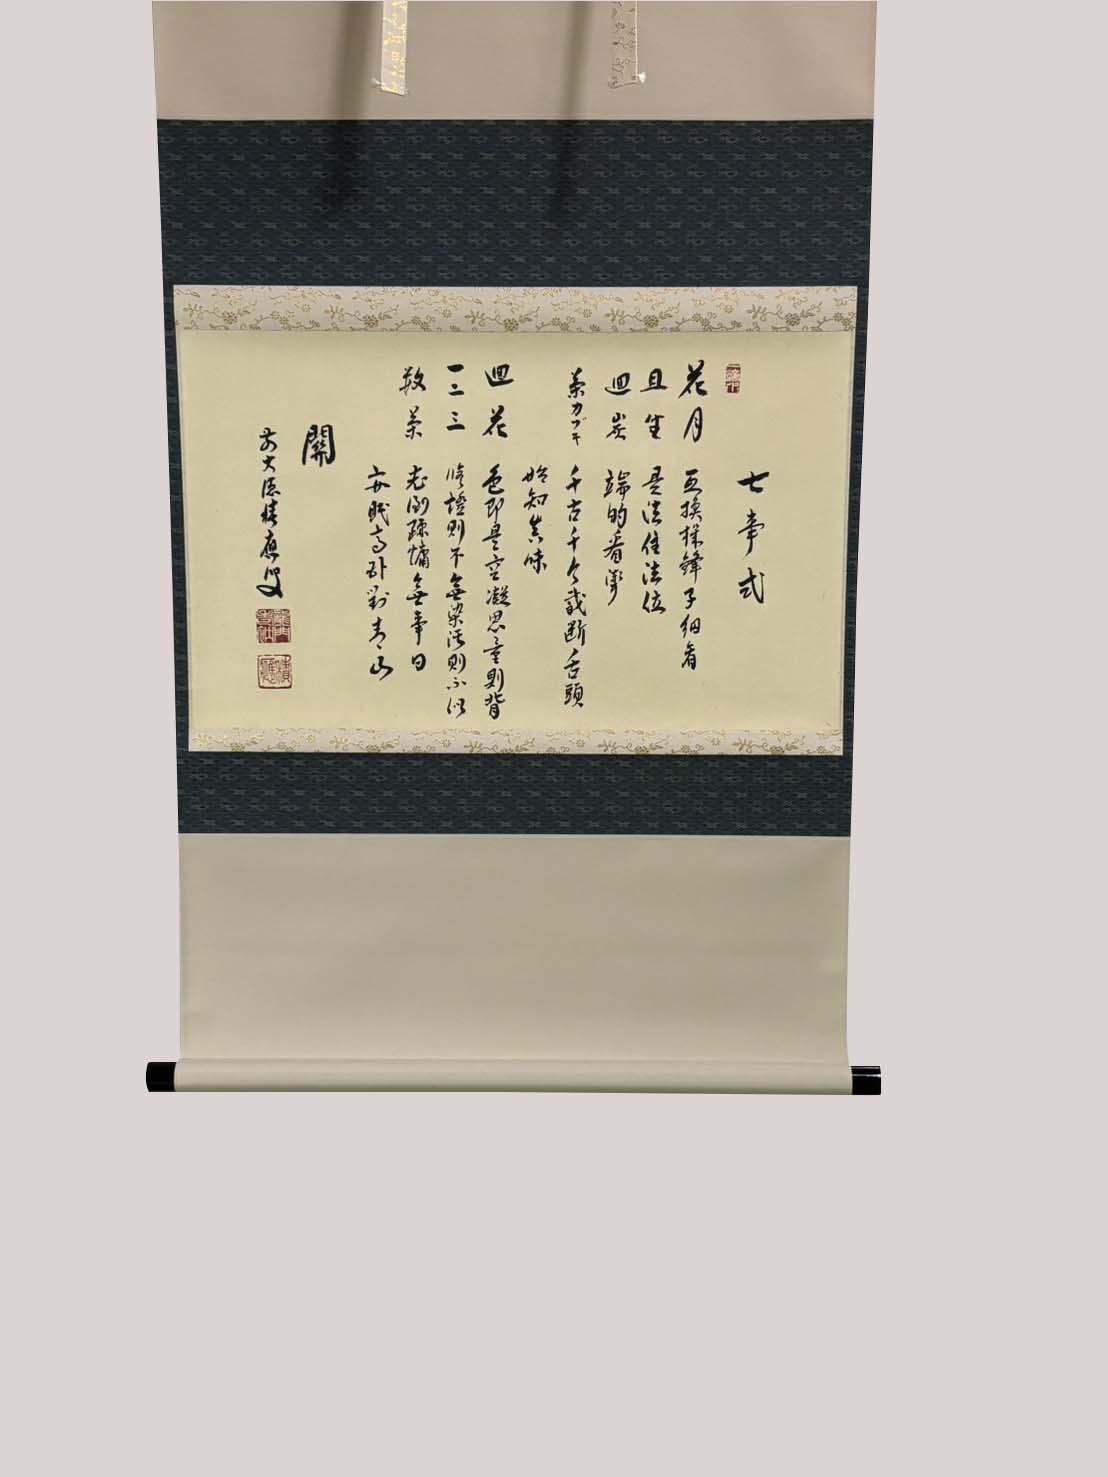 七事式
花月 互換機鋒子細看
且坐 是法住法位
廻炭 端的看聻
茶カブキ 千古千今截断舌頭
始知真味
廻花 色即是空凝思量則背
一二三 修證則不無染汚則不得
数茶 老倒疎慵無事日
安眠高臥對青山
關
前大徳積應叟